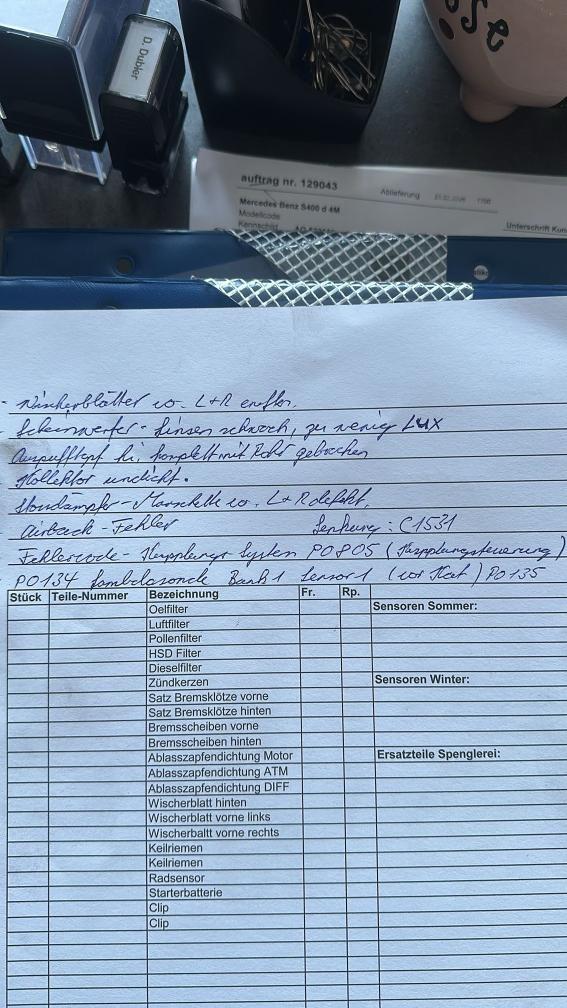 D. Dubler
auftrag nr. 129043
Ablieferung
Mercedes Benz S400 d 4M
Modellcode
Kennschild
Unterschrift Kun
- Wischerblätter vo. L+R
- Scheinwerfer - Linsen schwach, zu wenig Lux
Auspufftopf hi. komplett mit Rohr gebrochen
Kollektor undicht.
Stossdämpfer - Manschette vo. L+R defekt,
Airbach - Fehler Lenkung: C1531
Fehlercode - Kupplungs System P0805 (Kupplungsteuerung)
P0134 Lambdasonde Bank 1 Sensor 1 (vor Kat) P0135
Stück Teile-Nummer Bezeichnung Fr. Rp.
Sensoren Sommer:
Oelfilter
Luftfilter
Pollenfilter
HSD Filter
Dieselfilter
Zündkerzen
Sensoren Winter:
Satz Bremsklötze vorne
Satz Bremsklötze hinten
Bremsscheiben vorne
Bremsscheiben hinten
Ablasszapfendichtung Motor
Ersatzteile Spenglerei:
Ablasszapfendichtung ATM
Ablasszapfendichtung DIFF
Wischerblatt hinten
Wischerblatt vorne links
Wischerbaltt vorne rechts
Keilriemen
Keilriemen
Radsensor
Starterbatterie
Clip
Clip